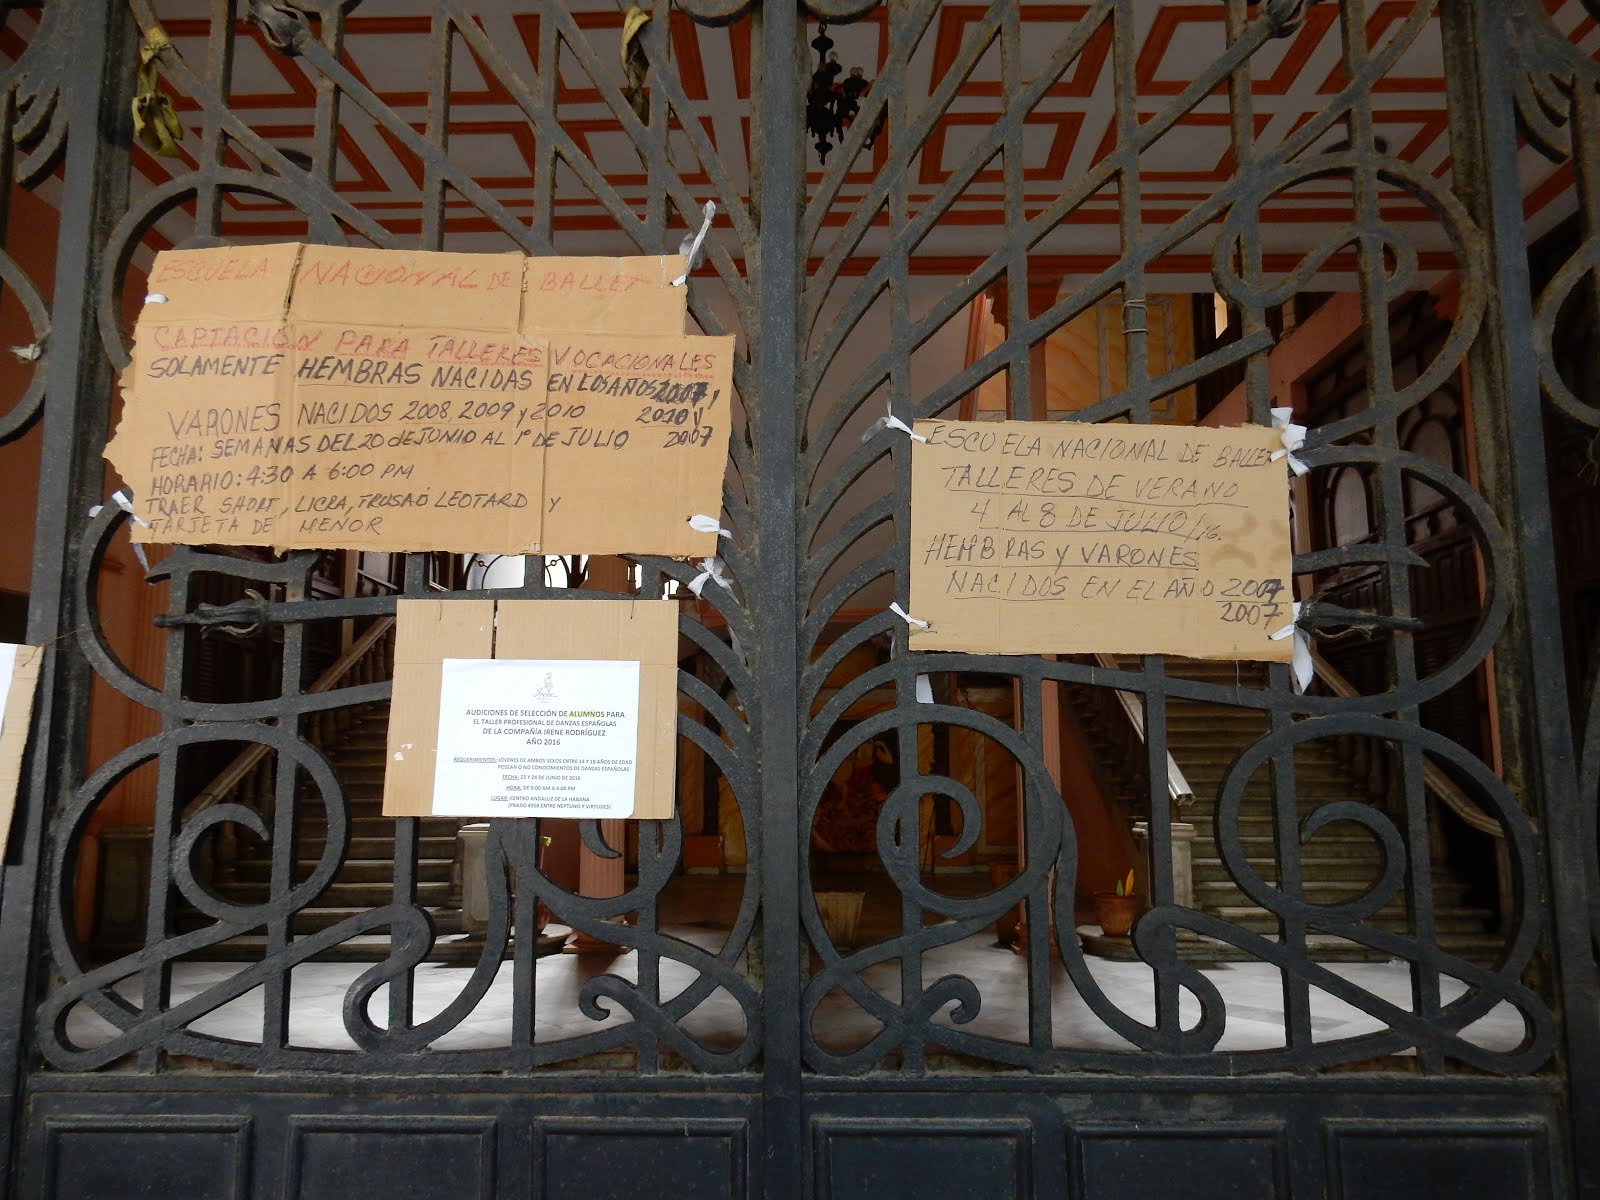 ESCUELA NACIONAL DE BALLET
CAPTACIÓN PARA TALLERES VOCACIONALES
SOLAMENTE HEMBRAS NACIDAS EN LOS AÑOS 2007,
2010 y
2007
VARONES NACIDOS 2008, 2009 y 2010
FECHA: SEMANAS DEL 20 de JUNIO AL 1º DE JULIO
HORARIO: 4:30 A 6:00 PM
TRAER SHORT, LICRA, TRUSA Ó LEOTARD y
TARJETA DE MENOR
Irene
AUDICIONES DE SELECCIÓN DE ALUMNOS PARA
EL TALLER PROFESIONAL DE DANZAS ESPAÑOLAS
DE LA COMPAÑÍA IRENE RODRÍGUEZ
AÑO 2016
REQUERIMIENTOS: JÓVENES DE AMBOS SEXOS ENTRE 14 Y 18 AÑOS DE EDAD
POSEAN O NO CONOCIMIENTOS DE DANZAS ESPAÑOLAS
FECHA: 23 Y 24 DE JUNIO DE 2016
HORA: DE 9:00 AM A 4:00 PM
LUGAR: CENTRO ANDALUZ DE LA HABANA
(PRADO #358 ENTRE NEPTUNO Y VIRTUDES)
ESCUELA NACIONAL DE BALLET
TALLERES DE VERANO
4 AL 8 DE JULIO/16.
HEMBRAS y VARONES
NACIDOS EN EL AÑO 2007
2007